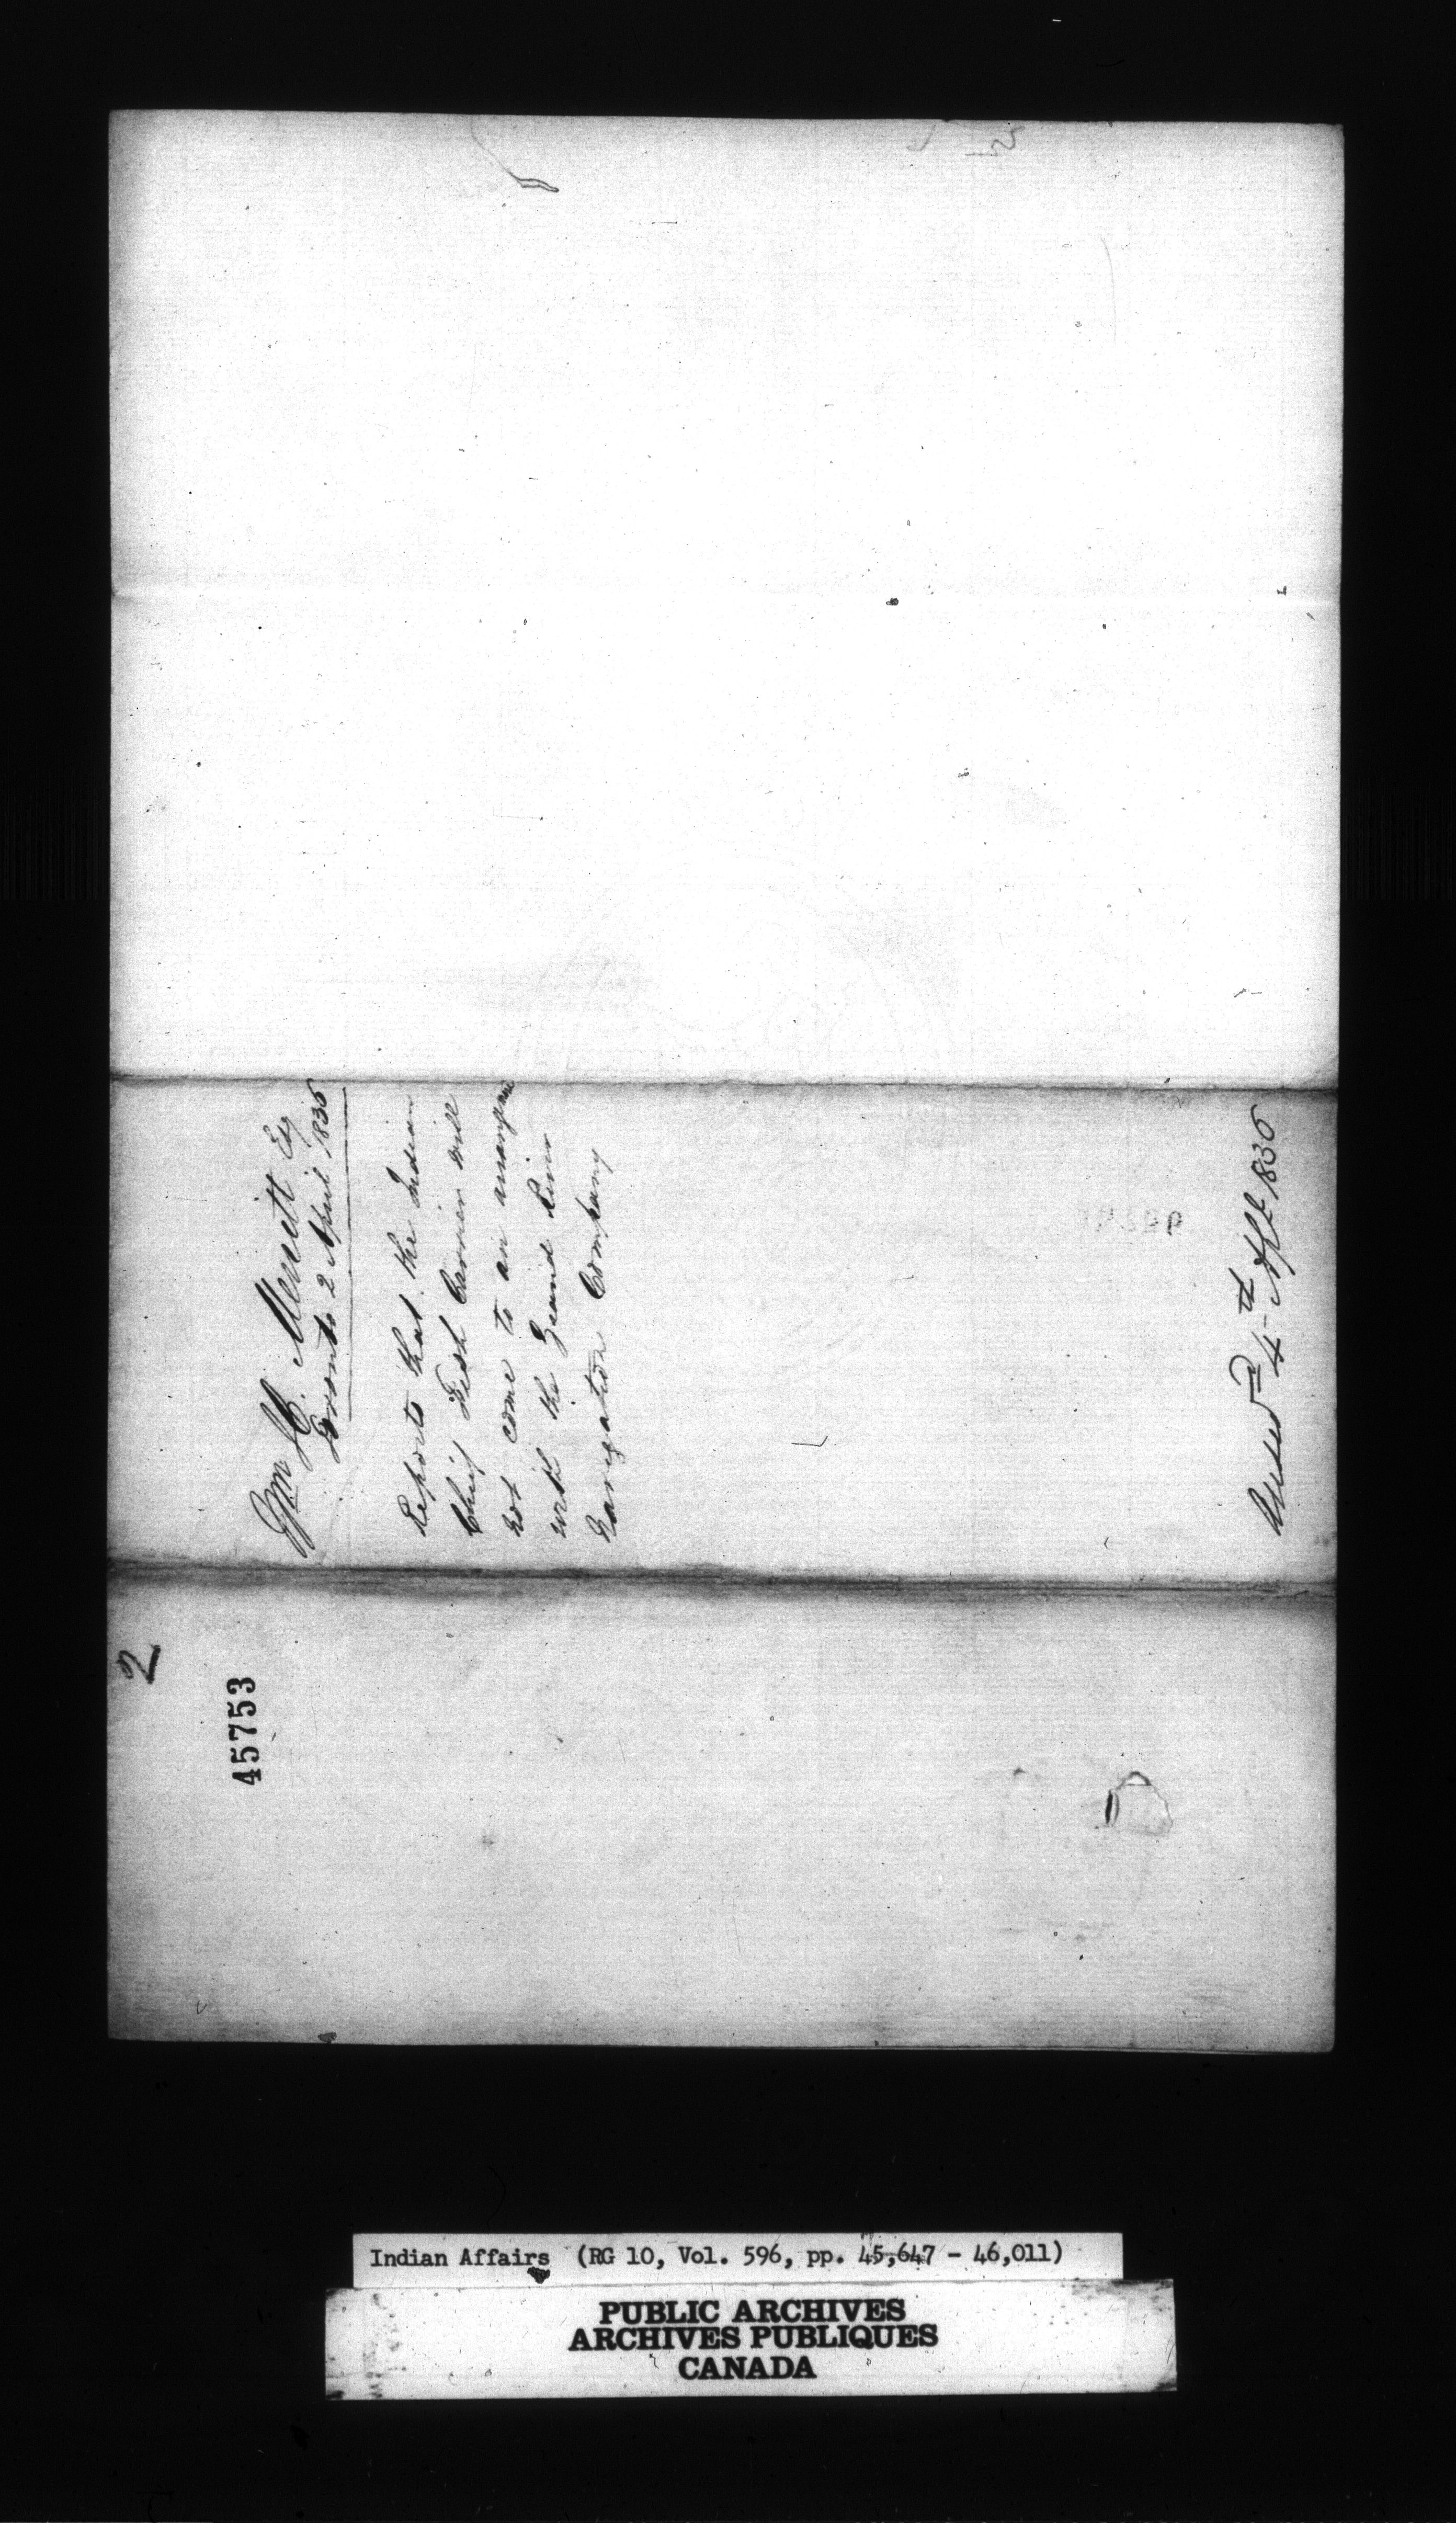 Wm H. Merritt Esq
Toronto 2 April 1835
Reports that the Indian
Chief Fish Carrier will
not come to an arrangmt
with the Grand River
Navigation Company
4th Apl 1835
2
45753
Indian Affairs (RG 10, Vol. 596, pp. 45,647 - 46,011)
PUBLIC ARCHIVES
ARCHIVES PUBLIQUES
CANADA